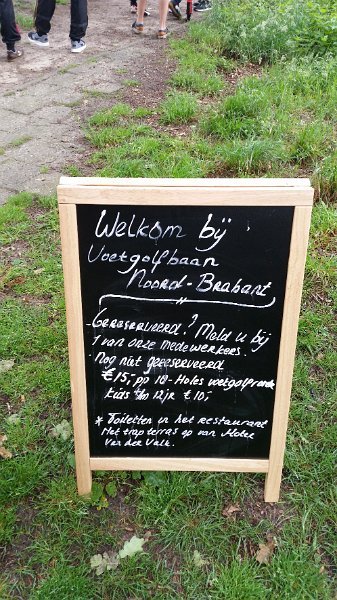 Welkom bij
Voetgolfbaan
Noord-Brabant
Gereserveerd? Meld u bij
1 van onze medewerkers.
Nog niet gereserveerd
€15,- pp 18-Holes voetgolfronde
Kids 12jr €10,-
* Toiletten in het restaurant
Met trap terras op van Hotel
Van der Valk.